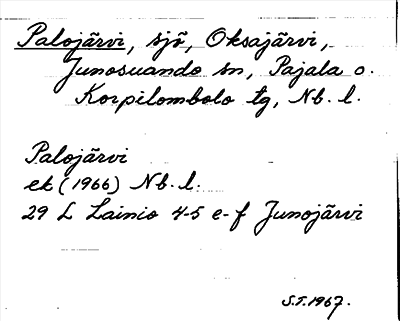 Palojärvi, sjö, Oksajärvi,
Junosuando sn, Pajala o.
Korpilombolo tg, Nb. l.
Palojärvi
ek (1966) Nb. l.
29 L Lainio 4-5 e-f Junojärvi
S.T. 1967.